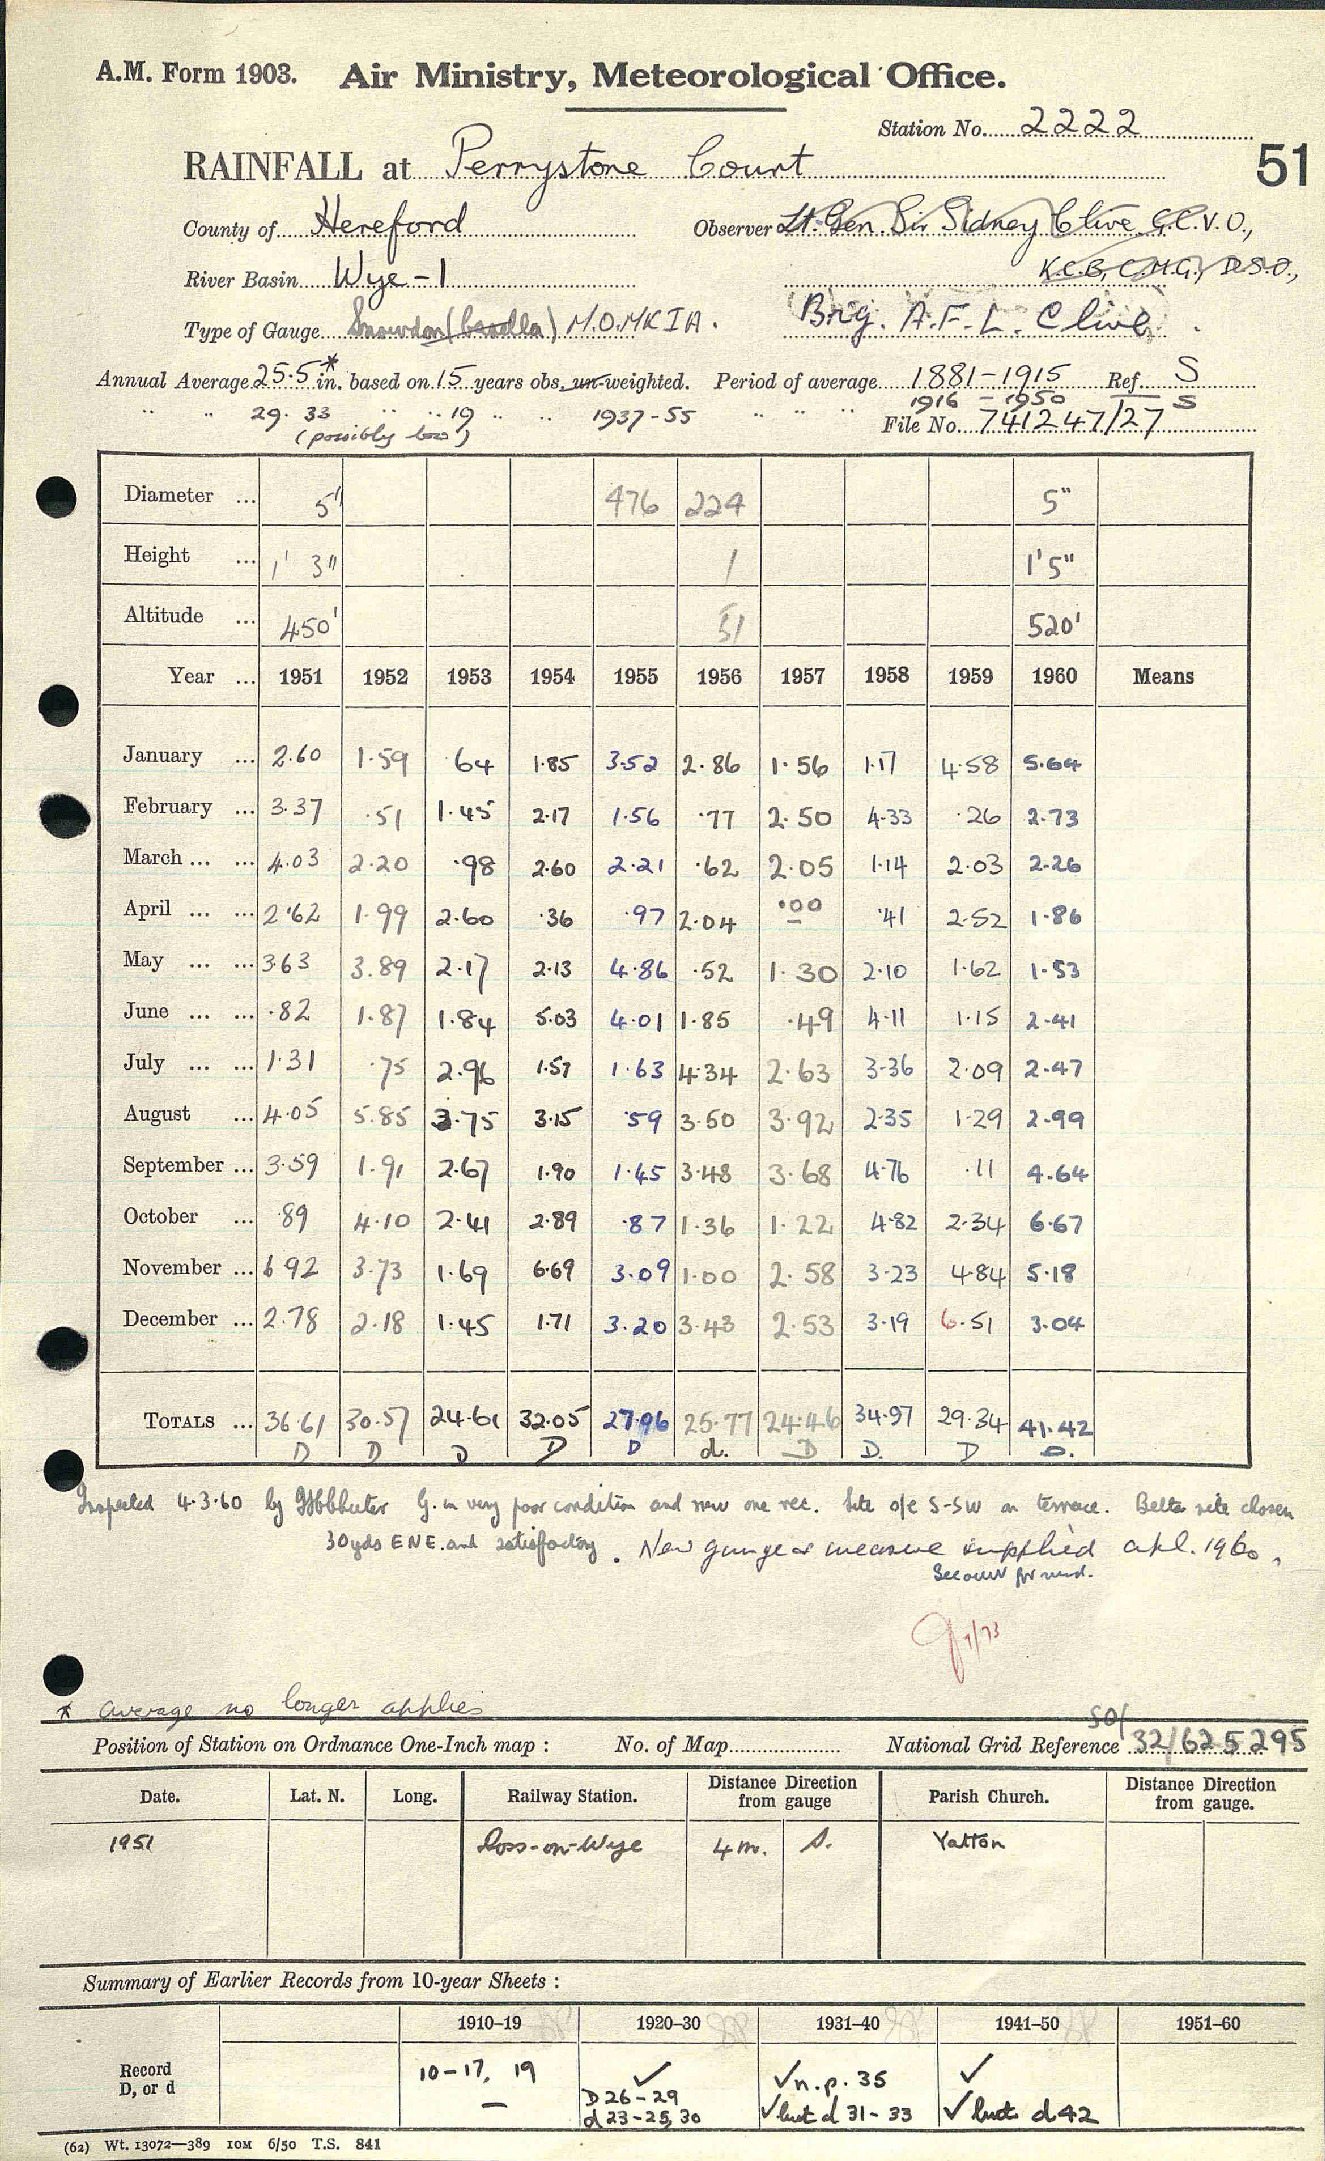 A.M. Form 1903. Air Ministry, Meteorological Office.
Station No. 2222
RAINFALL at Perrystone Court
51
County of Hereford Observer Lt. Gen. Sir Sidney Clive G.C.V.O.,
River Basin Wye - 1 K.C.B, C.M.G., D.S.O.,
Type of Gauge Snowdon (Casella) M.O. MK I A. Brig. A.F.L. Clive.
Annual Average 25.5* in. based on 15 years obs. un-weighted. Period of average 1881-1915 Ref. S
" " 29.33 " " 19 " " 1937-55 " " " 1916 - 1950 S
(possibly low) File No. 741247/27
Diameter ... 5" 476 224 5"
Height ... 1' 3" 1 1'5"
Altitude ... 450' 51 520'
Year ... 1951 1952 1953 1954 1955 1956 1957 1958 1959 1960 Means
January ... 2.60 1.59 .64 1.85 3.52 2.86 1.56 1.17 4.58 5.64
February ... 3.37 .51 1.45 2.17 1.56 .77 2.50 4.33 .26 2.73
March ... ... 4.03 2.20 .98 2.60 2.21 .62 2.05 1.14 2.03 2.26
April ... ... 2.62 1.99 2.60 .36 .97 2.04 .00 .41 2.52 1.86
May ... ... 3.63 3.89 2.17 2.13 4.86 .52 1.30 2.10 1.62 1.53
June ... ... .82 1.87 1.84 5.03 4.01 1.85 .49 4.11 1.15 2.41
July ... ... 1.31 .75 2.96 1.57 1.63 4.34 2.63 3.36 2.09 2.47
August ... 4.05 5.85 3.75 3.15 .59 3.50 3.92 2.35 1.29 2.99
September ... 3.59 1.91 2.67 1.90 1.45 3.48 3.68 4.76 .11 4.64
October ... .89 4.10 2.41 2.89 .87 1.36 1.22 4.82 2.34 6.67
November ... 6.92 3.73 1.69 6.69 3.09 1.00 2.58 3.23 4.84 5.18
December ... 2.78 2.18 1.45 1.71 3.20 3.43 2.53 3.19 6.51 3.04
TOTALS ... 36.61 30.57 24.61 32.05 27.96 25.77 24.46 34.97 29.34 41.42
D D D D D d. D D. D D.
Inspected 4.3.60 by G. in very poor condition and new one rec. Site o/e S-SW on terrace. Better site chosen
30yds ENE. and satisfactory. New gauge & measure supplied apl. 1960.
9/73
* average no longer applies
Position of Station on Ordnance One-Inch map : No. of Map National Grid Reference 32/625295
SO/
Date. Lat. N. Long. Railway Station. Distance from gauge Direction Parish Church. Distance Direction from gauge.
1951 Ross-on-Wye 4 m. S. Yatton
Summary of Earlier Records from 10-year Sheets :
1910-19 1920-30 1931-40 1941-50 1951-60
Record D, or d
10-17, 19 ✓ ✓ n.p. 35 ✓
— D 26-29 ✓ but d 31-33 ✓ but d 42
d 23-25, 30
(62) Wt. 13072—389 10M 6/50 T.S. 841